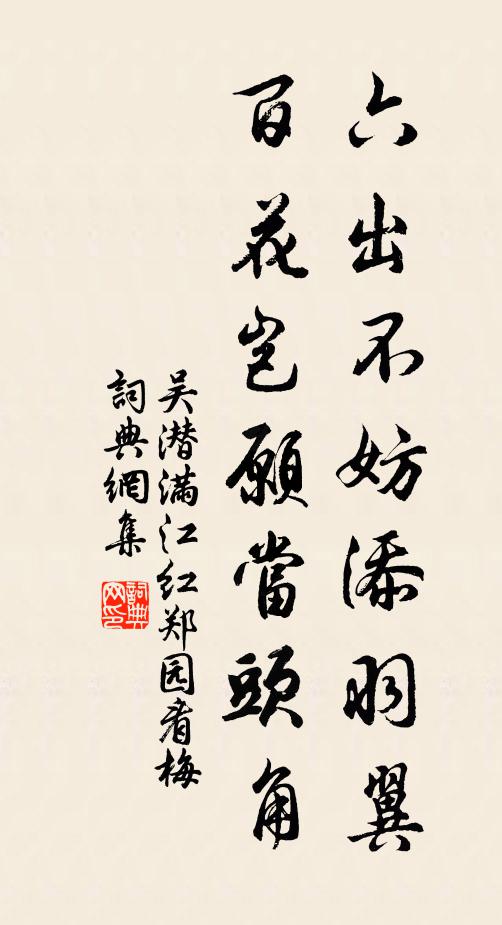 六出不妨添羽翼
百花岂愿當頭角
吴潜满江红郑园看梅
詞典網集
詞典
网印